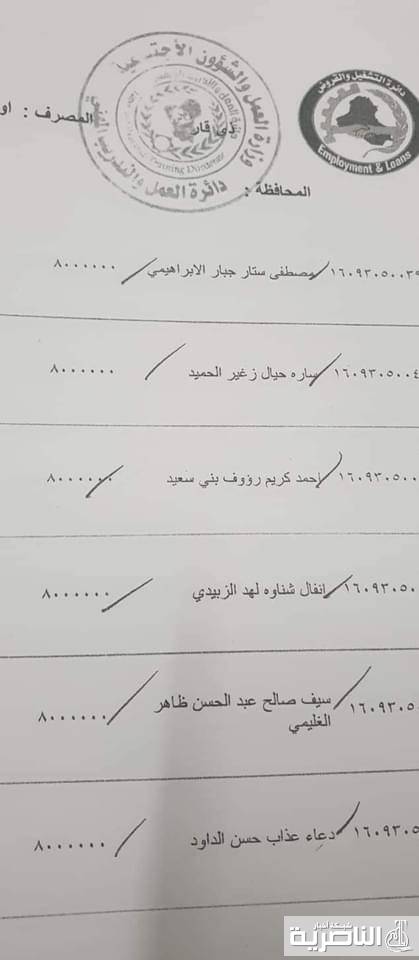 وزارة العمل والشؤون الأجتماعية
دائرة العمل والتدريب المهني
Training Directorate
دائرة التشغيل والقروض
Employment & Loans
المصرف : او
المحافظة : ذي قار
١٦٠٩٣٠٥٠٠٣٩ مصطفى ستار جبار الابراهيمي ٨٠٠٠٠٠٠
١٦٠٩٣٠٥٠٠٤ ساره حيال زغير الحميد ٨٠٠٠٠٠٠
١٦٠٩٣٠٥٠٠ احمد كريم رؤوف بني سعيد ٨٠٠٠٠٠٠
١٦٠٩٣٠٥٠ انفال شناوه لهد الزبيدي ٨٠٠٠٠٠٠
١٦٠٩٣٠٥ سيف صالح عبد الحسن ظاهر ٨٠٠٠٠٠٠
الغليمي
١٦٠٩٣٠٥ دعاء عذاب حسن الداود ٨٠٠٠٠٠٠
شبكة أخبار
الناصرية